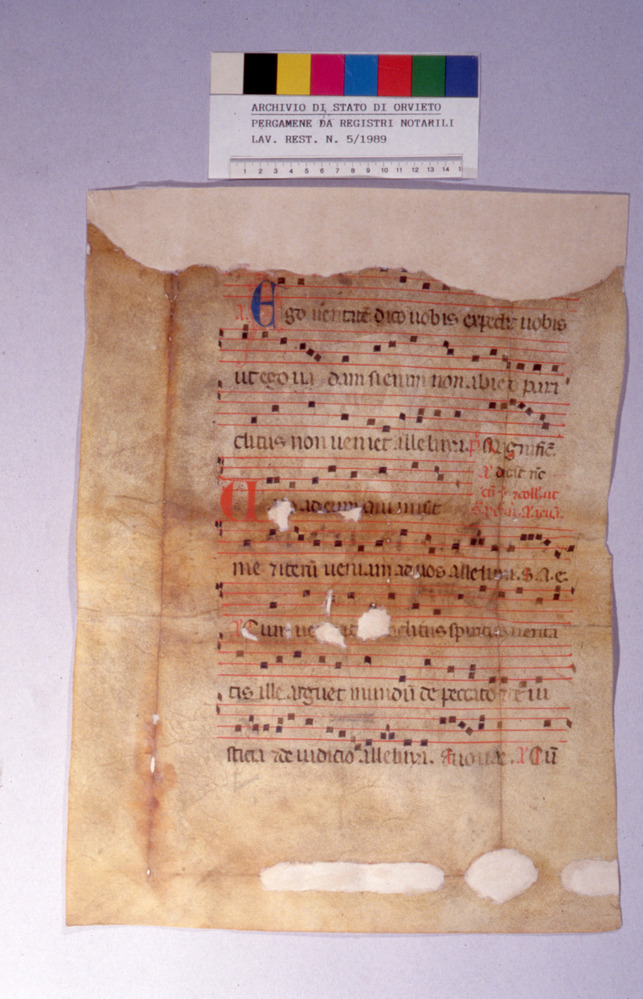 ARCHIVIO DI STATO DI ORVIETO
PERGAMENE DA REGISTRI NOTARILI
LAV. REST. N. 5/1989
1 2 3 4 5 6 7 8 9 10 11 12 13 14
Ego veritatē dico vobis expedit vobis
ut ego va dam si enim non abiero para
clitus non veniet alleluya. Magnific̄.
Vado ad eum qui misit
me ⁊ iterū veniam ad vos alleluya.
Cum spiritus verita
tis ille arguet mundū de peccato ⁊ de iu
sticia ⁊ de iudicio alleluya. Euouae. Cū